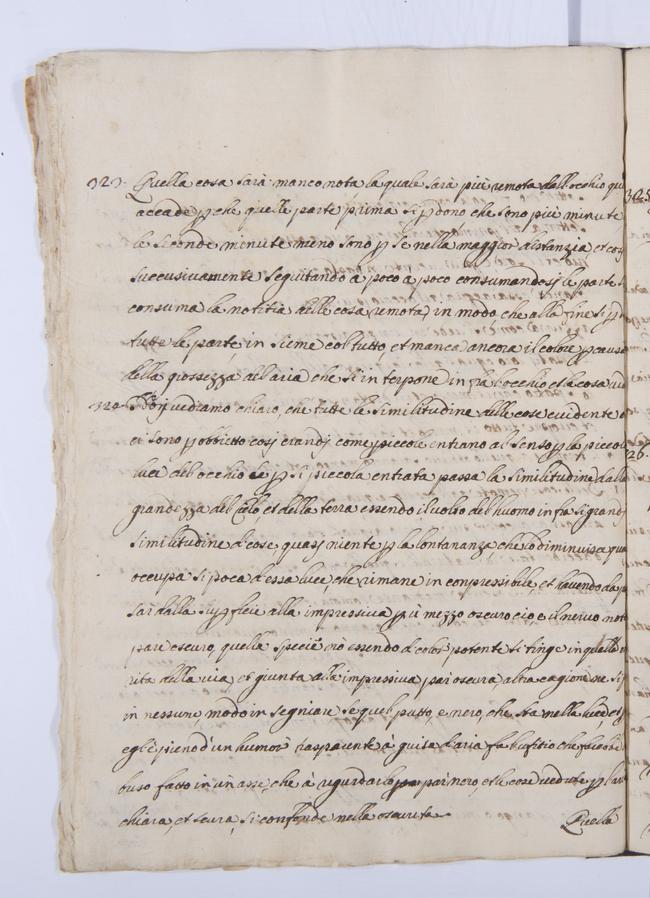 323. Quella cosa sarà manco nota, la quale sarà più remota dall occhio qu
accade p che quelle parte prima si pdono che sono più minute
le seconde minute meno sono p se nella maggior distanzia et cosj
succusivamente seguitando à poco à poco consumandosj le parte s
consuma la notitia della cosa remota, in modo, che alla fine si p
tutte le parte, in sieme col tutto, et manca ancora il colore p causa
della grossezza dell aria che si in terpone in fra l occhio et la cosa ve
Noj vediamo chiaro, che tutte le similitudine delle cose evidente
ci sono p obbietto cosj grandj come piccole entrano al senso p le piccol
luci dell occhio se p si piccola entrata passa la similitudine dalla
grandezza del Cielo, et della terra essendo il volto dell huomo in fra si grandj
similitudine di cose, quasj niente p la lontananza, che lo diminuisce qua
occupa si poca d essa luce, che rimane in conpressibile, et havendo da p
sar dalla supficie alla impressiva p ù mezzo oscuro cioe il nervo noto
pare oscuro, quella specie nō essendo di color potente si tinge in quella o
rità della via, et giunta alla impressiva par oscura, altra cagione ne si p
in nessuno modo in segniare se quel putto, e nero, che sta nella luce et p
egl è pieno d un humor trasparente à guisa d aria fa l ufitio che farebbe
buso fatto in un asse, che à rigurdarlo par nero, et le cose vedute p l ar
chiara, et scura, si confonde nella oscurita
Quella
305
26.